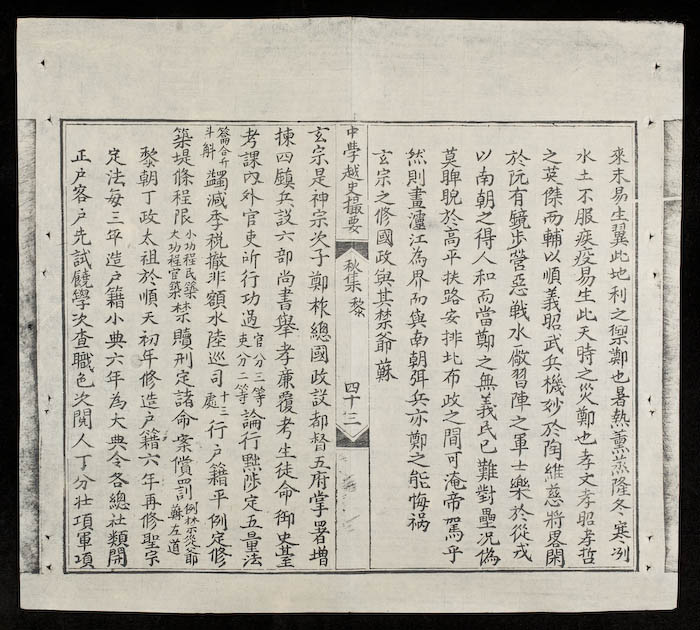 來未易生翼此地利之禦鄭也暑熱薰蒸隆冬寒冽
水土不服疾疫易生此天時之災鄭也孝文孝昭孝哲
之英傑而輔以順義昭武兵機妙於陶維慈將畧閑
於阮有鏡步營惡戰水㒈習陣之軍士樂於從戎
以南朝之得人和而當鄭之無義民已難對壘況偽
莫睥睨於高平扶路安排北布政之間可淹帝駕乎
然則畫瀍江為界而與南朝弭兵亦鄭之能悔禍
玄宗之修國政與其禁爺蘇
中學越史撮要
秋集 黎
四十三
玄宗是神宗次子鄭柞總國政設都督五府掌署增
揀四鎮兵設六部尚書舉孝廉覆考生徒命御史臺
考課內外官吏所行功過官分三等吏分二等論行黜陟定五量法
籥合升斗斛蠲減季稅撤非額水陸巡司十三處行户籍平例定修
築堤條程限小功程民築大功程官築禁贖刑定諸命案償罰例林巫從爺蘇左道
黎朝丁政太祖於順天初年修造户籍六年再修聖宗
定法每三年造户籍小典六年為大典令各總社類開
正户客户先試饒學次查職色次閱人丁分壯項軍項